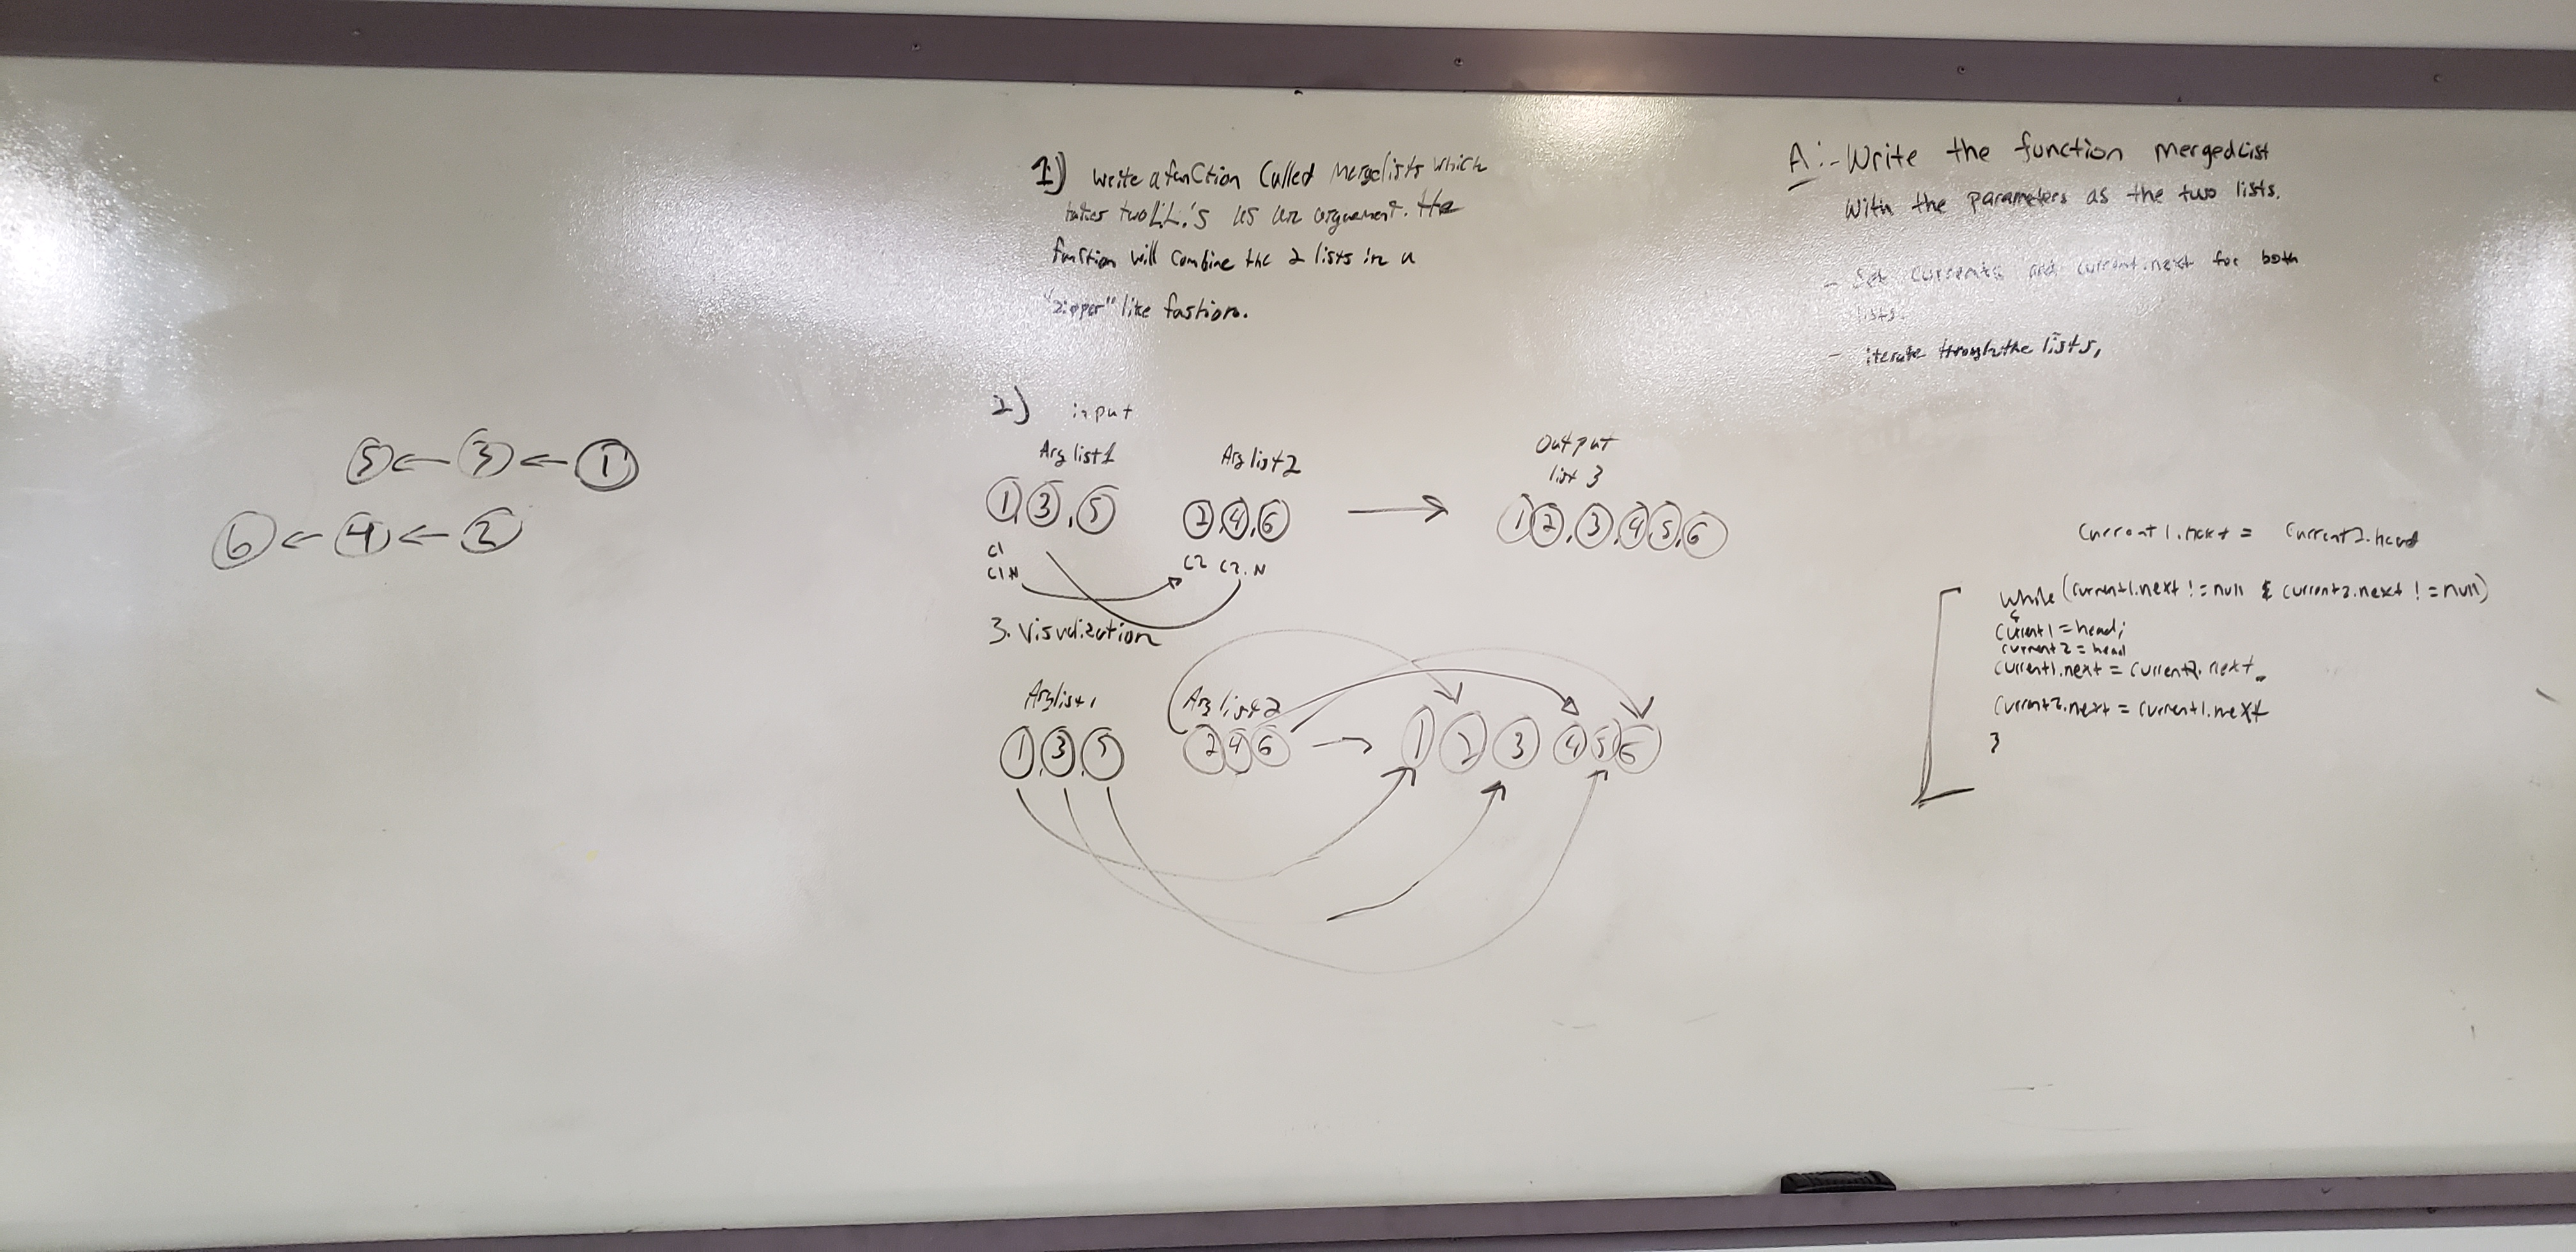 1) Write a function called mergelists which
takes two LL.'s as an arguement. the
function will combine the 2 lists in a
"zipper" like fastion.
2) input
Arg list1 Arg list2 Output
list 3
1, 3, 5 2, 4, 6 → 1 2, 3, 4 5, 6
C1 C2 C2.N
C1.N
3. Visualization
Arglist1 Arg list2
1, 3, 5 2 4 6 → 1 2 3 4 5 6
5 ← 3 ← 1
6 ← 4 ← 2
A:- Write the function mergedList
With the parameters as the two lists.
- Set and current.next for both
lists.
- iterate through the lists,
current1.next = current2.head
while (current1.next != null & current2.next != null)
{
current1 = head;
current2 = head
current1.next = current2.next
current2.next = current1.next
}